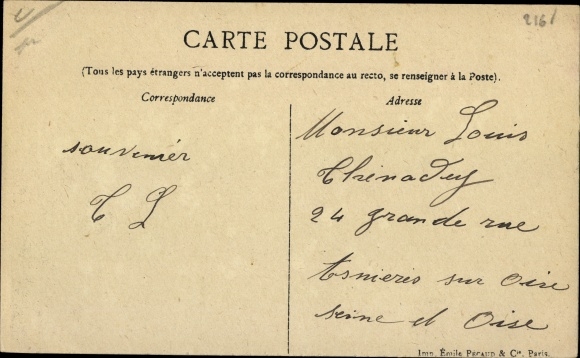 2161
CARTE POSTALE
(Tous les pays étrangers n'acceptent pas la correspondance au recto, se renseigner à la Poste).
Correspondance
Adresse
souvenier
T L
Monsieur Louis
24 grande rue
Asnieres sur Oise
seine et Oise
Imp. Émile Pécaud & Cie. Paris.